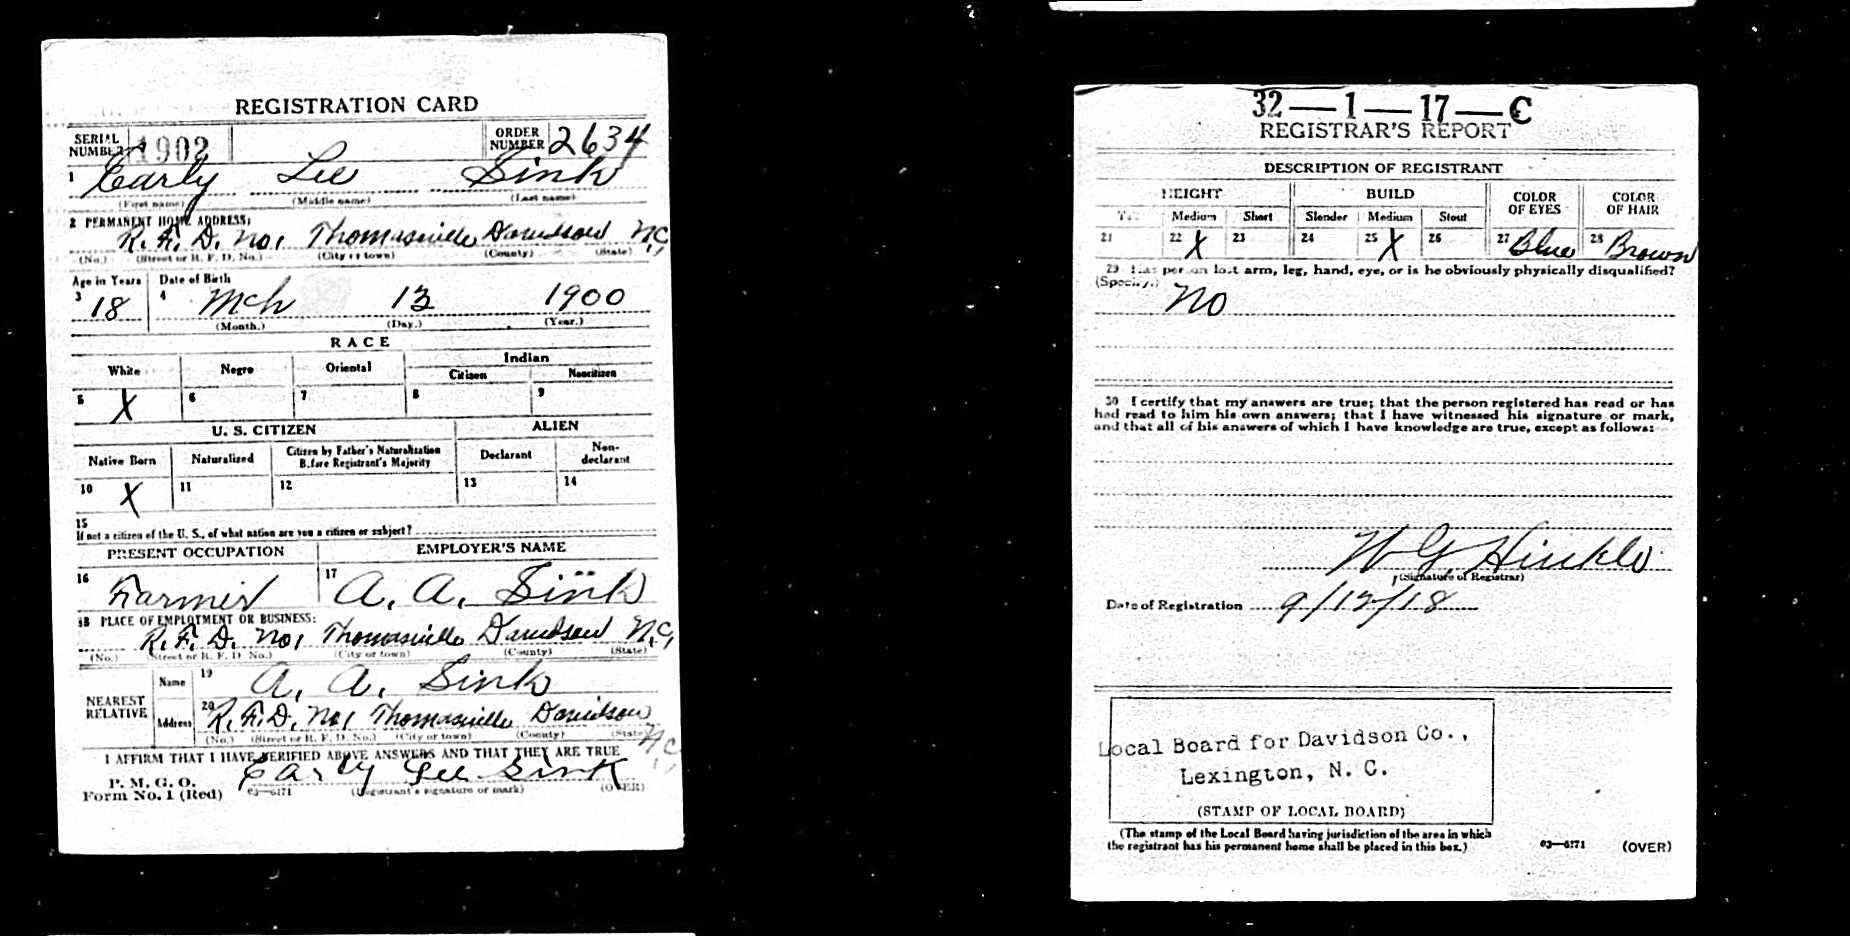 REGISTRATION CARD
SERIAL NUMBER 1902 ORDER NUMBER 2634
1 Early Lee Sink
(First name) (Middle name) (Last name)
2 PERMANENT HOME ADDRESS:
R. F. D. No 1 Thomasville Davidson N.C.
(No.) (Street or R. F. D. No.) (City or town) (County) (State)
Age in Years Date of Birth
3 18 4 Mch 13 1900
(Month.) (Day.) (Year.)
RACE
White Negro Oriental Indian
Citizen Noncitizen
5 X 6 7 8 9
U. S. CITIZEN ALIEN
Native Born Naturalized Citizen by Father's Naturalization Before Registrant's Majority Declarant Non-declarant
10 X 11 12 13 14
15
If not a citizen of the U. S., of what nation are you a citizen or subject?
PRESENT OCCUPATION EMPLOYER'S NAME
16 Farmer 17 A. A. Sink
18 PLACE OF EMPLOYMENT OR BUSINESS:
R. F. D. No 1 Thomasville Davidson N.C.
(No.) (Street or R. F. D. No.) (City or town) (County) (State)
NEAREST RELATIVE Name 19 A. A. Sink
Address 20 R. F. D. No 1 Thomasville Davidson N.C.
(No.) (Street or R. F. D. No.) (City or town) (County) (State)
I AFFIRM THAT I HAVE VERIFIED ABOVE ANSWERS AND THAT THEY ARE TRUE
P. M. G. O.
Form No. 1 (Red) Early Lee Sink
03—6171 (Registrant's signature or mark) (OVER)
32—1—17—C
REGISTRAR'S REPORT
DESCRIPTION OF REGISTRANT
HEIGHT BUILD COLOR OF EYES COLOR OF HAIR
Tall Medium Short Slender Medium Stout
21 22 X 23 24 25 X 26 27 Blue 28 Brown
29 Has person lost arm, leg, hand, eye, or is he obviously physically disqualified?
(Specify.) No
30 I certify that my answers are true; that the person registered has read or has
had read to him his own answers; that I have witnessed his signature or mark,
and that all of his answers of which I have knowledge are true, except as follows:
W G Hinkle
(Signature of Registrar)
Date of Registration 9/12/18
Local Board for Davidson Co.,
Lexington, N. C.
(STAMP OF LOCAL BOARD)
(The stamp of the Local Board having jurisdiction of the area in which
the registrant has his permanent home shall be placed in this box.)
03—6171 (OVER)